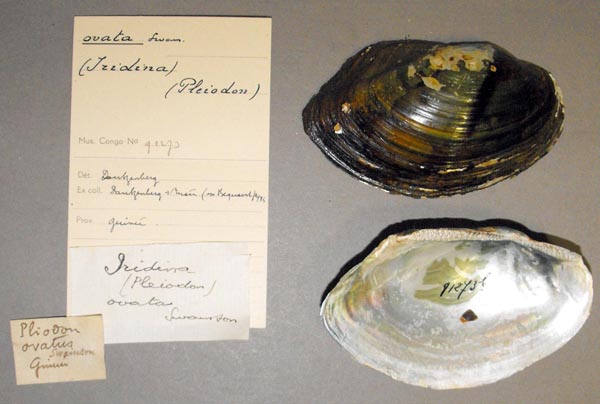 ovata Swain.
(Iridina)
(Pleiodon)
Mus. Congo No
Dét. Dautzenberg
Ex coll. Dautzenberg
Prov. Guinée
Iridina
(Pleiodon)
ovata
Swainson
Pliodon
ovatus
Swainson
Guinée